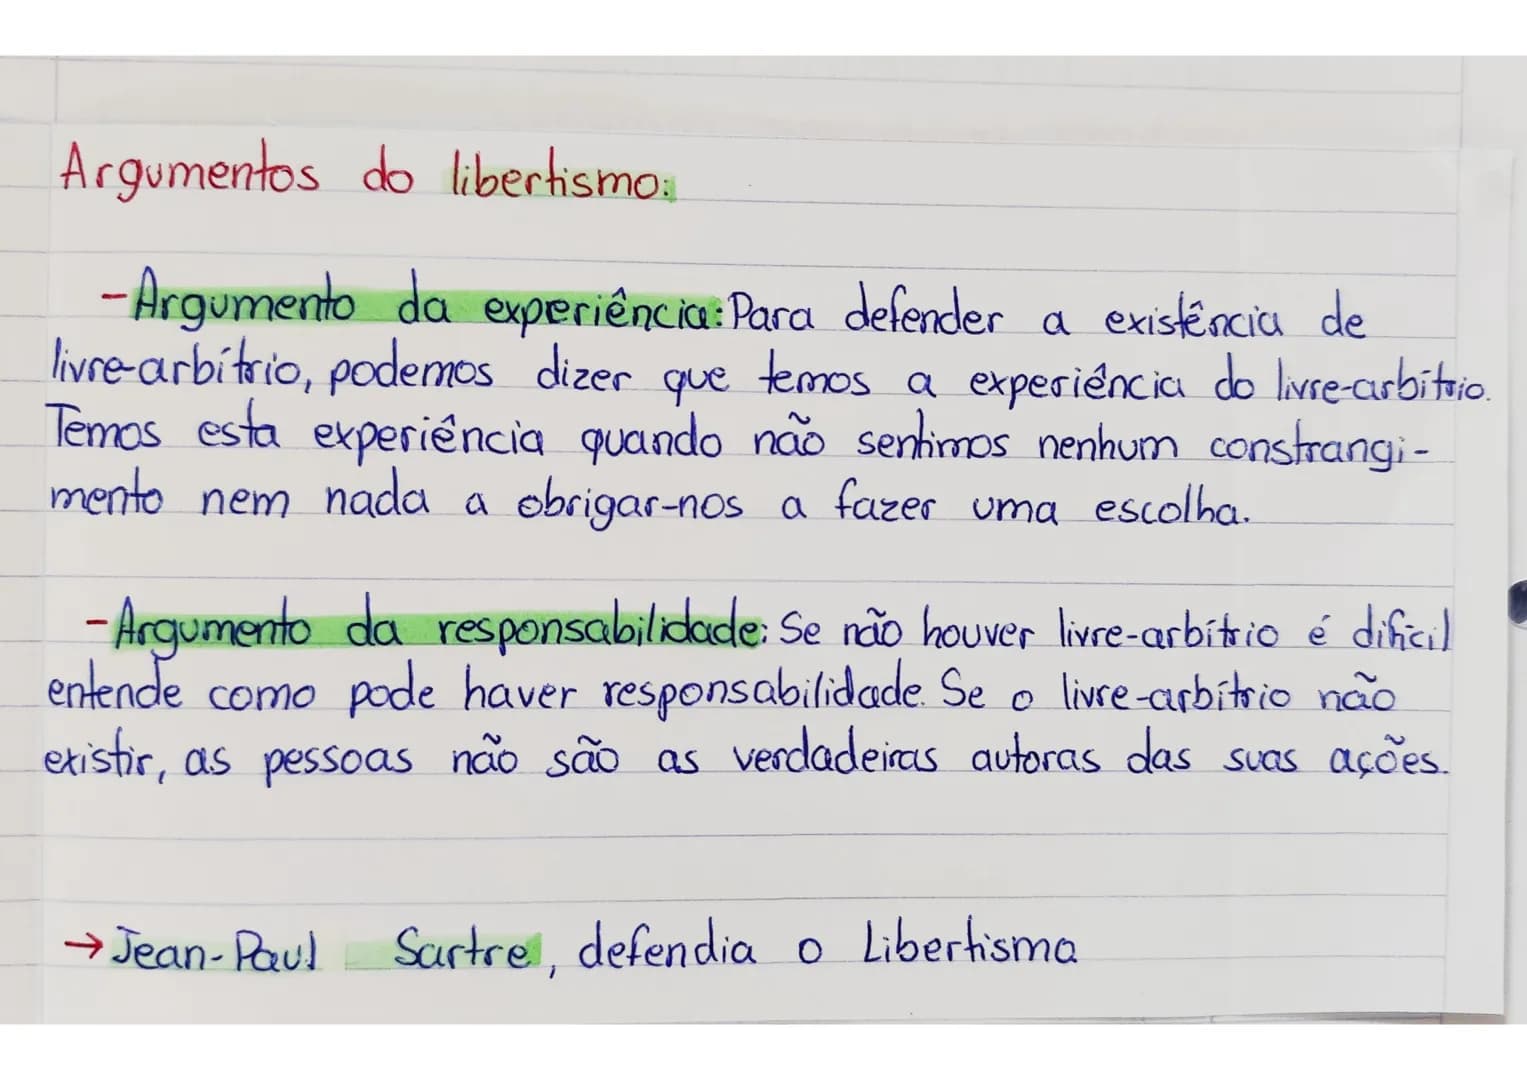 Argumentos do libertismo:
-Argumento da experiência: Para defender a existência de
livre-arbítrio, podemos dizer que temos a experiência do livre-arbítrio.
Temos esta experiência quando não sentimos nenhum constrangi-
mento nem nada a obrigar-nos a fazer uma escolha.
-Argumento da responsabilidade: Se não houver livre-arbítrio é difícil
entende como pode haver responsabilidade. Se o livre-arbítrio não
existir, as pessoas não são as verdadeiras autoras das suas ações.
→ Jean-Paul Sartre, defendia o Libertismo